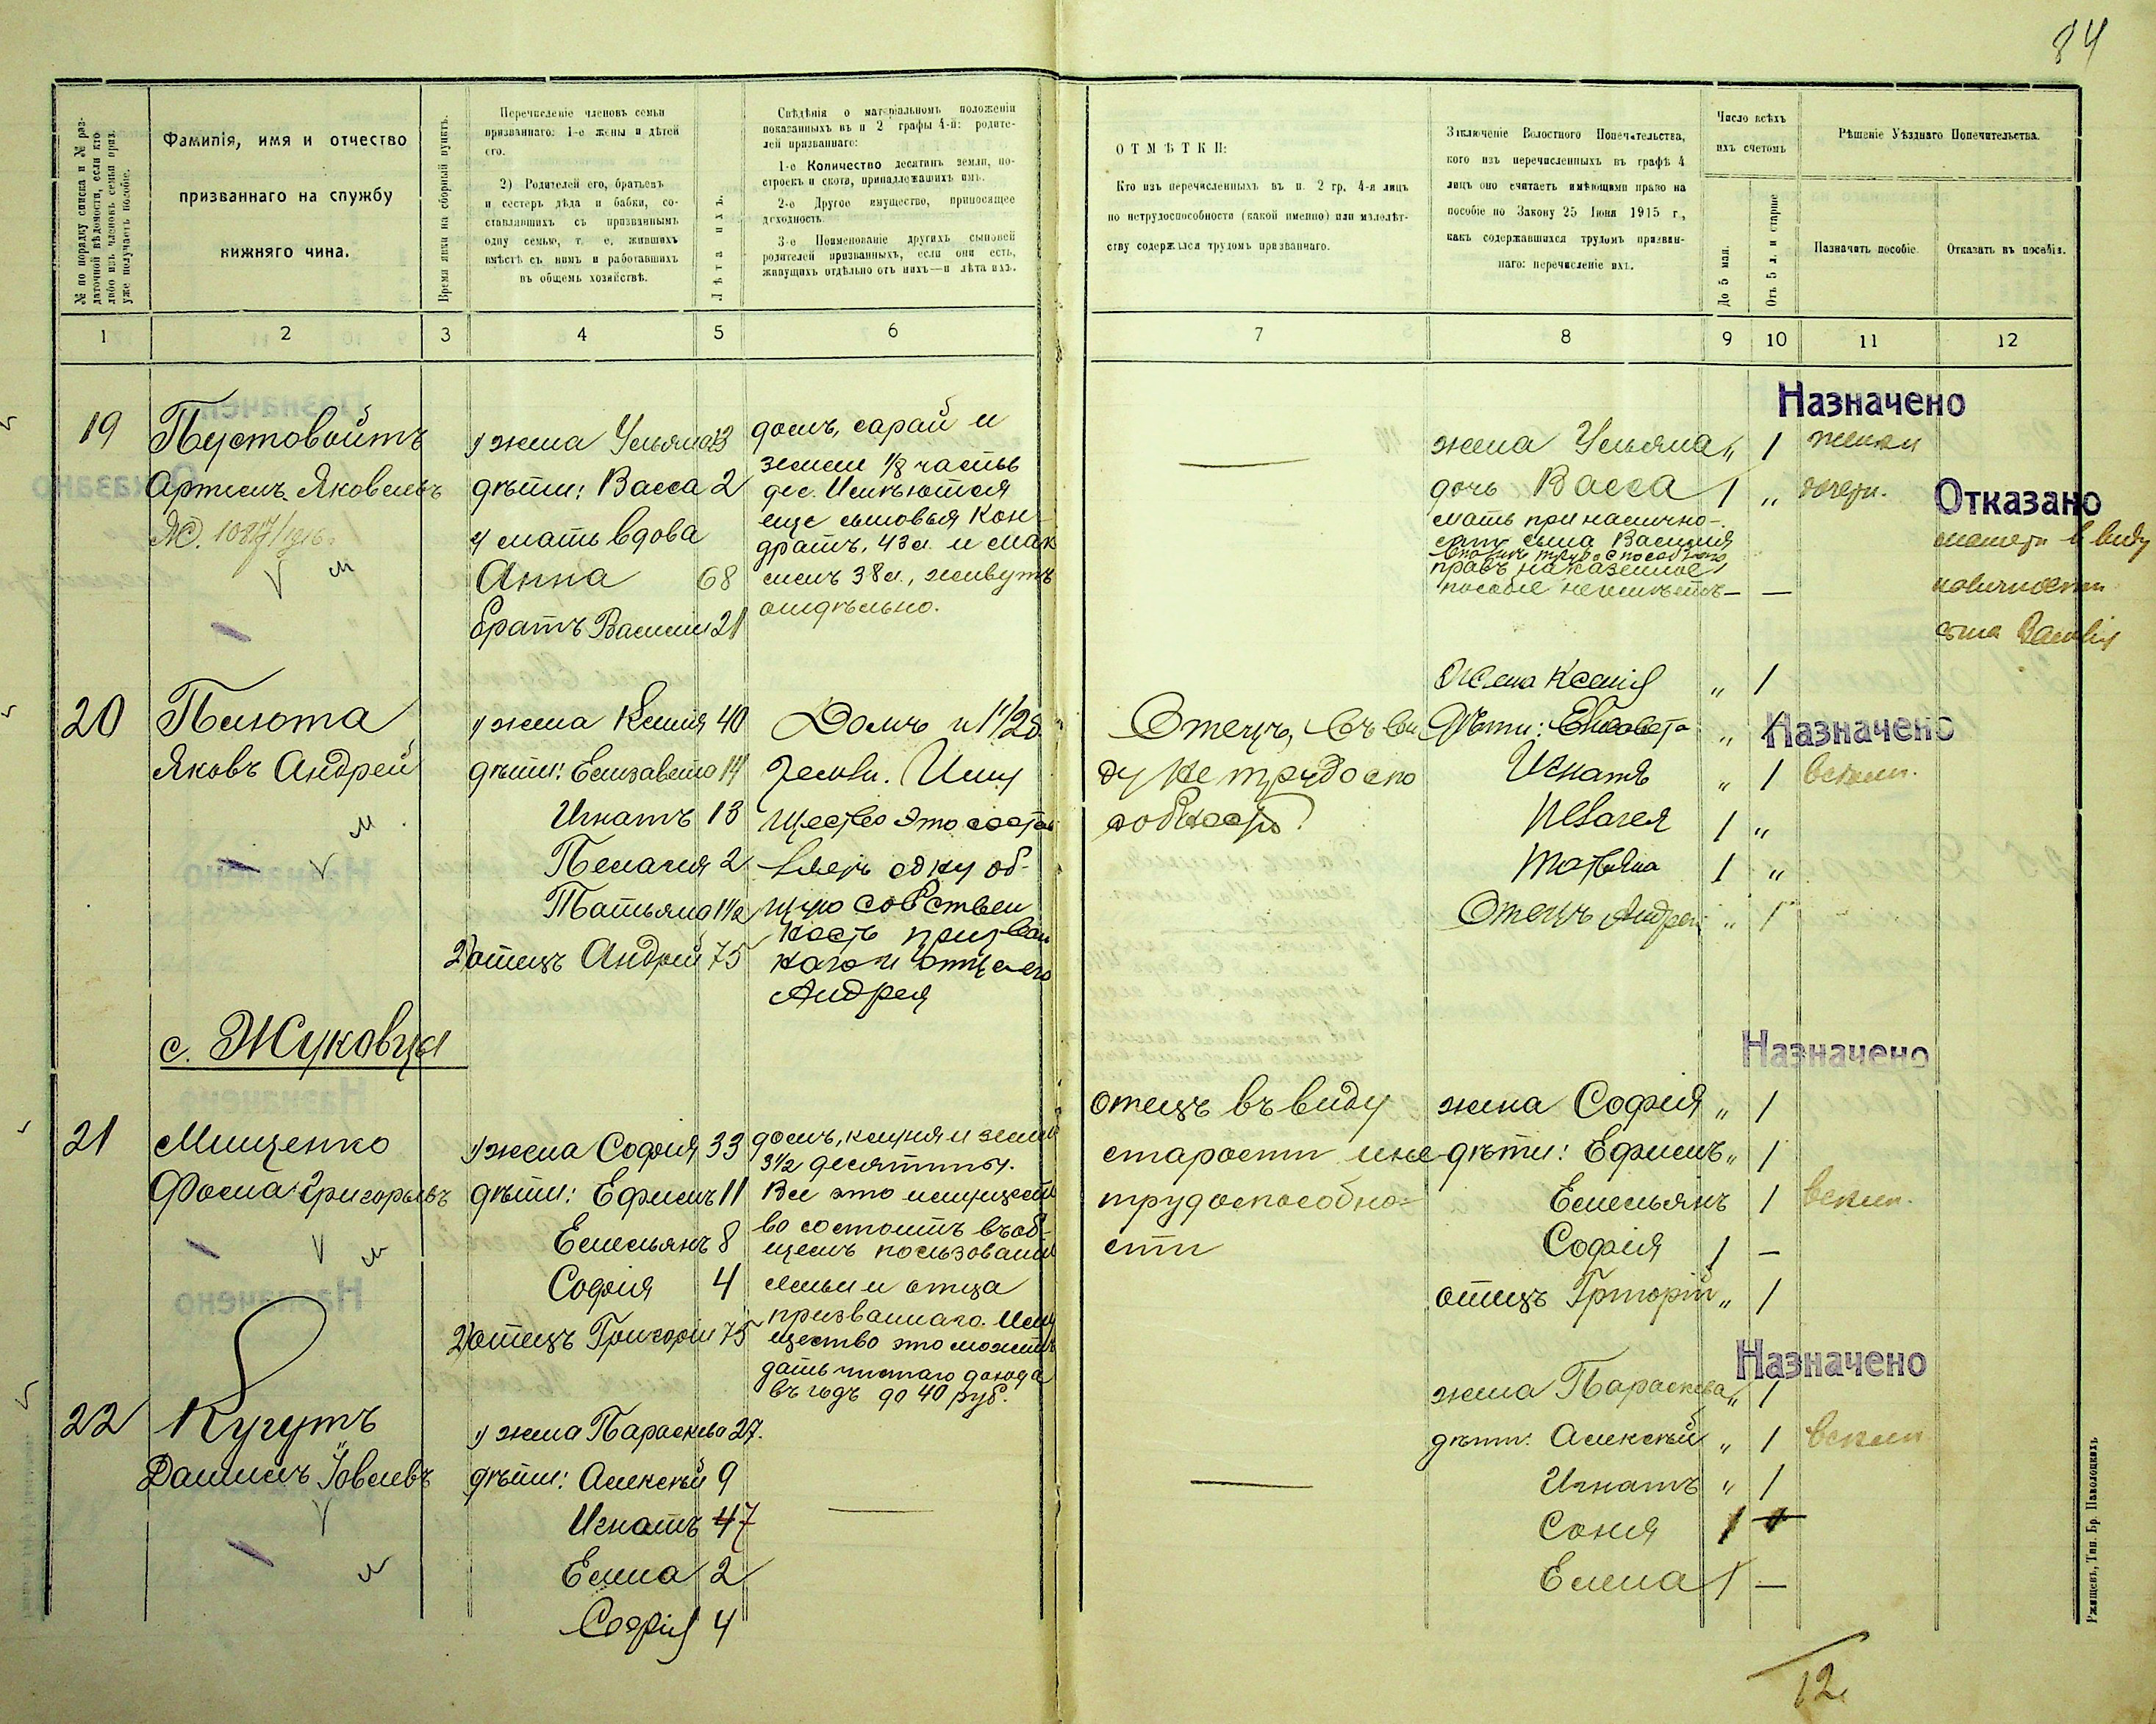 84
№ по порядку списка и № раз-
даточной вѣдомости, если кто
либо изъ членовъ семьи приз.
уже получаетъ пособіе.
Фамилія, имя и отчество
призваннаго на службу
нижняго чина.
Время явки на сборный пунктъ.
Перечисленіе членовъ семьи
призваннаго: 1-е жены и дѣтей
его.
2) Родителей его, братьевъ
и сестеръ дѣда и бабки, со-
ставлявшихъ съ призваннымъ
одну семью, т. е. жившихъ
вмѣстѣ съ нимъ и работавшихъ
въ общемъ хозяйствѣ.
Лѣта ихъ.
Свѣдѣнія о матеріальномъ положеніи
показанныхъ въ п 2 графы 4-й: родите-
лей призваннаго:
1-о Количество десятинъ земли, по-
строекъ и скота, принадлежащихъ имъ.
2-о Другое имущество, приносящее
доходность.
3-о Поименованіе другихъ сыновей
родителей призванныхъ, если они есть,
живущихъ отдѣльно отъ нихъ—и лѣта ихъ.
ОТМѢТКИ:
Кто изъ перечисленныхъ въ п. 2 гр. 4-я лицъ
по нетрудоспособности (какой именно) или малолѣт-
ству содержался трудомъ призваннаго.
Заключеніе Волостного Попечительства,
кого изъ перечисленныхъ въ графѣ 4
лицъ оно считаетъ имѣющими право на
пособіе по Закону 25 Іюня 1915 г.,
какъ содержавшихся трудомъ призван-
наго: перечисленіе ихъ.
Число всѣхъ
ихъ счетомъ
До 5 мал.
Отъ 5 л. и старше
Рѣшеніе Уѣзднаго Попечительства.
Назначить пособіе.
Отказать въ пособіи.
1 2 3 4 5 6 7 8 9 10 11 12
19 Пустовойтъ
Артемъ Яковлевъ
1) жена Ульяна 23
дѣти: Васса 2
2) мать вдова
Анна 68
братъ Василій 21
домъ, сарай и
земли 1/8 частью
дес. Имѣются
еще сыновья Кон-
дратъ, 43 л. и Мак
симъ 38 л., живутъ
отдѣльно.
—
жена Ульяна „ 1
дочь Васса 1 „
мать при налично-
сти сына Василія
правъ на казенное
пособіе не имѣетъ — —
Назначено
женѣ
дочери.
Отказано
матери в виду
наличности
сына Василія
20 Пилюта
Яковъ Андрей
1) жена Ксенія 40
дѣти: Елизавета 14
Игнатъ 13
Пелагія 2
Татьяна 1 1/2
2) отецъ Андрей 75
Домъ и 1 1/2 д.
земли. Иму
щество это состав
ляетъ одну об-
щую собствен
ность призван
наго и отца его
Андрея
Отецъ, въ ви
ду нетрудоспо
собности
Жена Ксенія „ 1
Дѣти: Елисавета „ 1
Игнатъ „ 1
Пелагея 1 „
Татьяна 1 „
Отецъ Андрей „ 1
Назначено
всѣмъ.
с. Жуковцы
21 Мищенко
Фома Григорьевъ
1) жена Софія 33
дѣти: Ефимъ 11
Емельянъ 8
Софія 4
2) отецъ Григорій 75
домъ, клуня и земли
3 1/2 десятины.
Все это имущест
во состоитъ въ об-
щемъ пользованіи
семьи и отца
призваннаго. Иму
щество это можетъ
дать чистаго дохода
въ годъ до 40 руб.
отецъ въ виду
старости и не-
трудоспособно-
сти
жена Софія „ 1
дѣти: Ефимъ „ 1
Емельянъ 1
Софія 1 —
отецъ Григорій „ 1
Назначено
всѣмъ.
22 Кугутъ
Даніилъ Іовлевъ
1) жена Параскева 27.
дѣти: Алексѣй 9
Игнатъ 7
Елена 2
Софія 4
—
—
жена Параскева „ 1
дѣти: Алексѣй „ 1
Игнатъ „ 1
Соня 1
Елена 1 —
Назначено
всѣмъ
12
Ржищевъ, Тип. Бр. Паволоцкихъ